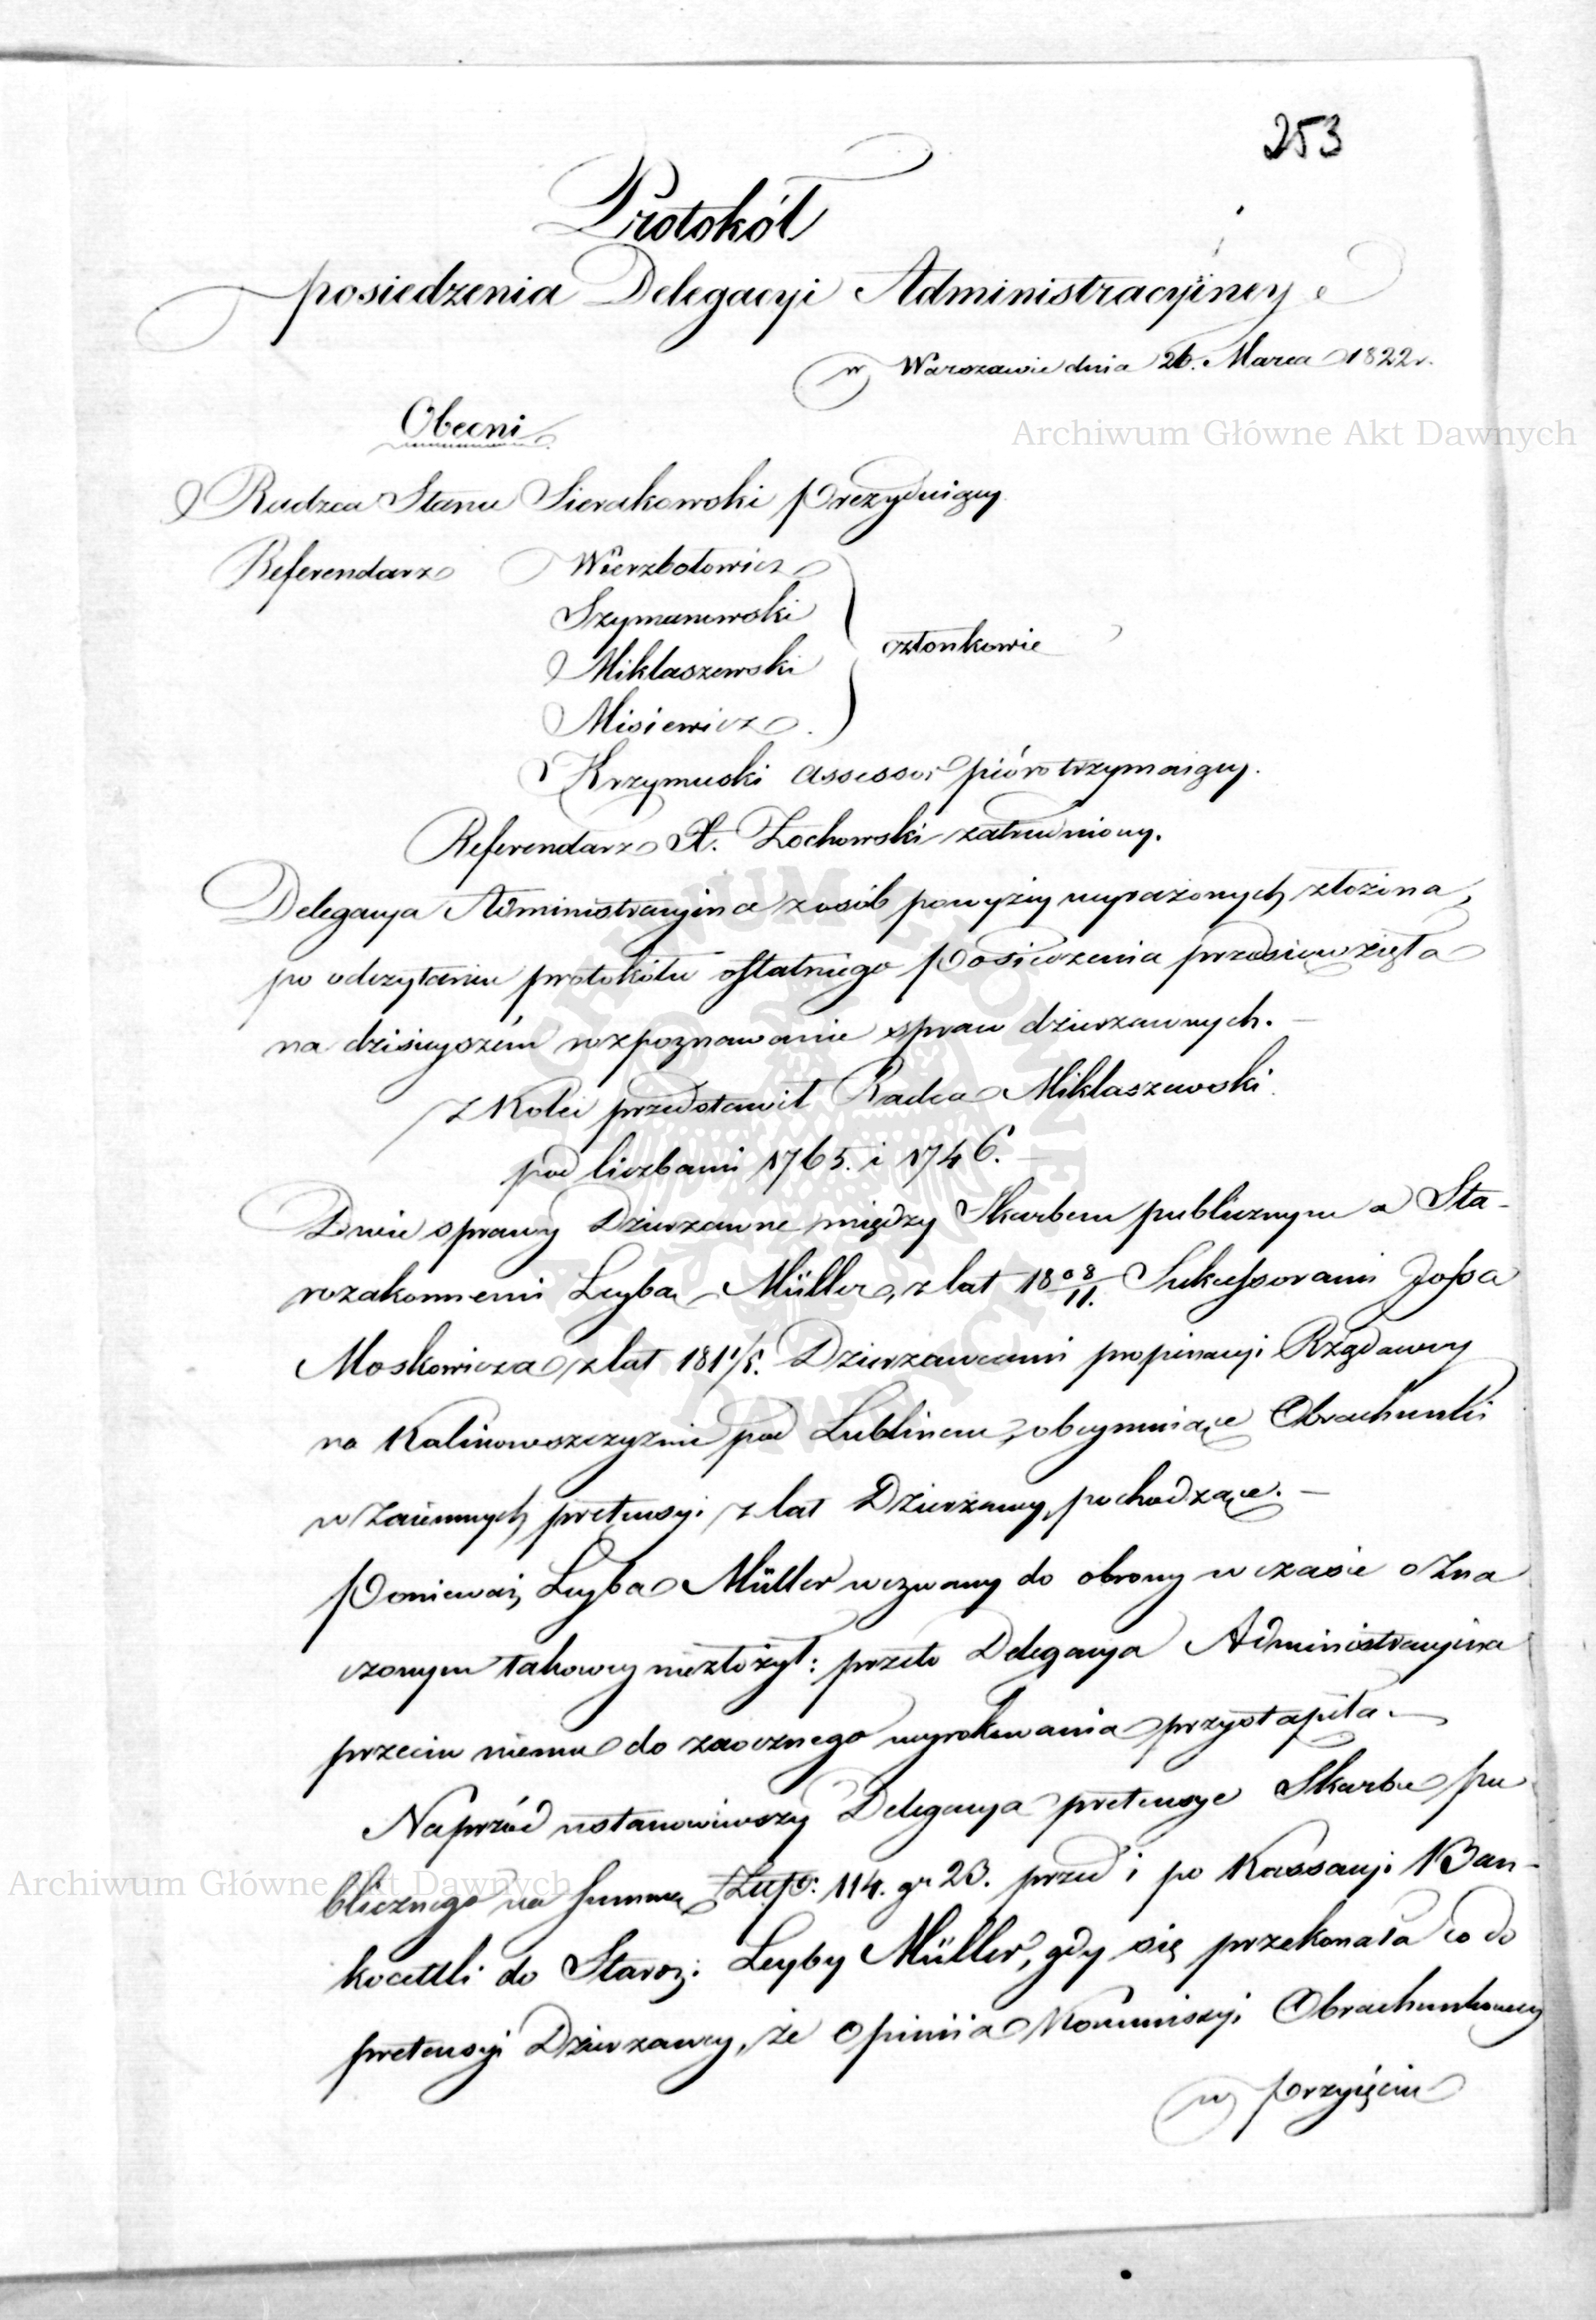 253
Protokół
posiedzenia Delegacyi Administracyiney
w Warszawie dnia 26. Marca 1822 r.
Obecni
Archiwum Główne Akt Dawnych
Radzca Stanu Sierakowski Prezyduiący
Referendarz Wierzbołowicz
Szymanowski
Miklaszewski
członkowie
Misiewicz
Krzymuski Assessor pióro trzymaiący.
Referendarz X. Żochowski zatrudniony.
Delegacya Administracyina z osób powyżey wyrażonych złożona,
po odczytaniu protokółu ostatniego Posiedzenia przedsięwzięła
na dzisieyszém rozpoznawanie spraw dzierzawnych. —
Z Kolei przedstawił Radca Miklaszewski
pod liczbami 1765. i 1746. —
Dwie sprawy Dzierzawne między Skarbem publicznym a Sta-
rozakonnemi Leyba Müller, z lat 1808/11. Sukcessorami Jossa
Moskowicza z lat 1811/5. Dzierzawcami propinacyi Rządowey
na Kalinowszczyznie pod Lublinem, obeymuiące Obrachunki
wzaiemnych pretensyi z lat Dzierzawy pochodzące. —
Ponieważ Leyba Müller wezwany do obrony w czasie ozna
czonym takowey niezłożył: przeto Delegacya Administracyina
przeciw niemu do zaocznego wyrokowania przystąpiła. —
Naprzód ustanowiwszy Delegacya pretensye Skarbu pu
blicznego na summę Złłp. 114. gr 23. przed i po Kassacyi Ban-
Archiwum Główne Akt Dawnych
kocetli do Staroz. Leyby Müller, gdy się przekonała co do
pretensyi Dzierzawcy, że Opiniia Kommissyi Obrachunkowey
w przyięciu